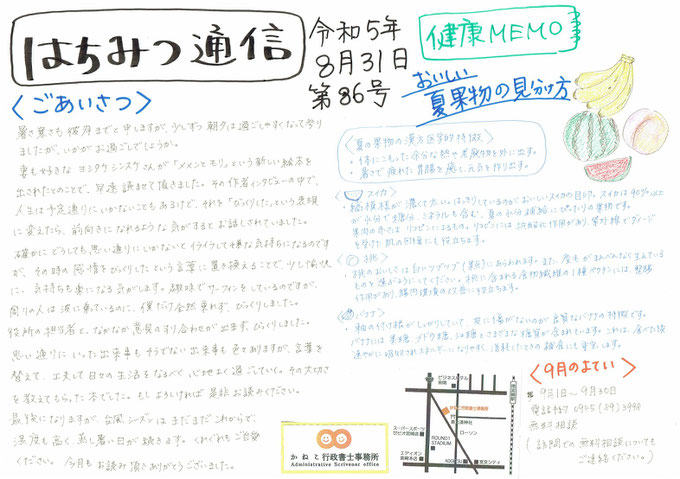 はちみつ通信
令和5年
8月31日
第86号
健康MEMO
おいしい
夏果物の見分け方
〈ごあいさつ〉
暑さ寒さも彼岸までと申しますが、少しずつ朝夕は過ごしやすくなって参り
ましたが、いかがお過ごしでしょうか。
妻も好きなヨシタケシンスケさんが「メメンとモリ」という新しい絵本を
出されたとのことで、早速読ませて頂きました。その作者インタビューの中で、
人生は予定通りにいかないこともあるけど、それを「びっくりした」という表現
に変えたら、前向きになれるような気がするとお話しされていました。
確かにどうしても思い通りにいかないとイライラして嫌な気持ちになるのです
が、その時の感情をびっくりしたという言葉に置き換えることで、少し愉快
に、気持ちも楽になる気がします。趣味でサーフィンをしているのですが、
周りの人は波に乗っているのに、僕だけ全然乗れず、びっくりしました。
役所の担当者と、なかなか意見のすり合わせが出来ず、びっくりしました。
思い通りにいった出来事もそうでない出来事も色々ありますが、言葉を
替えて、工夫して日々の生活をなるべく、心地よく過ごしていく。その大切さ
を教えてもらった本でした。もしよろしければ是非お読みください。
最後になりますが、台風シーズンはまだまだこれからで、
湿度も高く、蒸し暑い日が続きます。くれぐれもご自愛
ください。今月もお読み頂きありがとうございました。
〈夏の果物の漢方医学的特徴〉
・体にこもった余分な熱や老廃物を外に出す。
・暑さで疲れた胃腸を癒し、元気を作り出す。
スイカ
・縞模様が濃くて太い。はっきりしているのがおいしいスイカの目印。スイカは90%以上
が水分で糖分、ミネラルも含む、夏の水分補給にぴったりの果物です。
果肉の赤ではリコピンによるもの。リコピンには抗酸化作用があり、紫外線でダメージ
を受けた肌の回復にも役立ちます。
桃
・桃のおいしさは白いツブツブ(果点)にあらわれます。また、産毛がまんべんなく生えている
ものを選ぶようにしてください。桃に含まれる食物繊維の1種ペクチンには、整腸
作用があり、腸内環境の改善に役立ちます。
バナナ
・軸の付け根がしっかりしていて、皮に傷がないのが良質なバナナの特徴です。
バナナには果糖、ブドウ糖、ショ糖とさまざまな糖質が含まれています。これは、食べた後
速やかに吸収されエネルギーになりやすく、消耗したときの補食にも重宝します。
〈9月のよてい〉
9月1日〜9月30日
電話相談
無料相談
(訪問での無料相談についても
ご連絡ください。)
かねこ行政書士事務所
Administrative Scrivener office
ビジネスホテル
かねこ行政書士事務所
ローソン
スーパースポーツ
ゼビオ宮崎本店
ROUND1
STADIUM
エディオン
宮崎本店